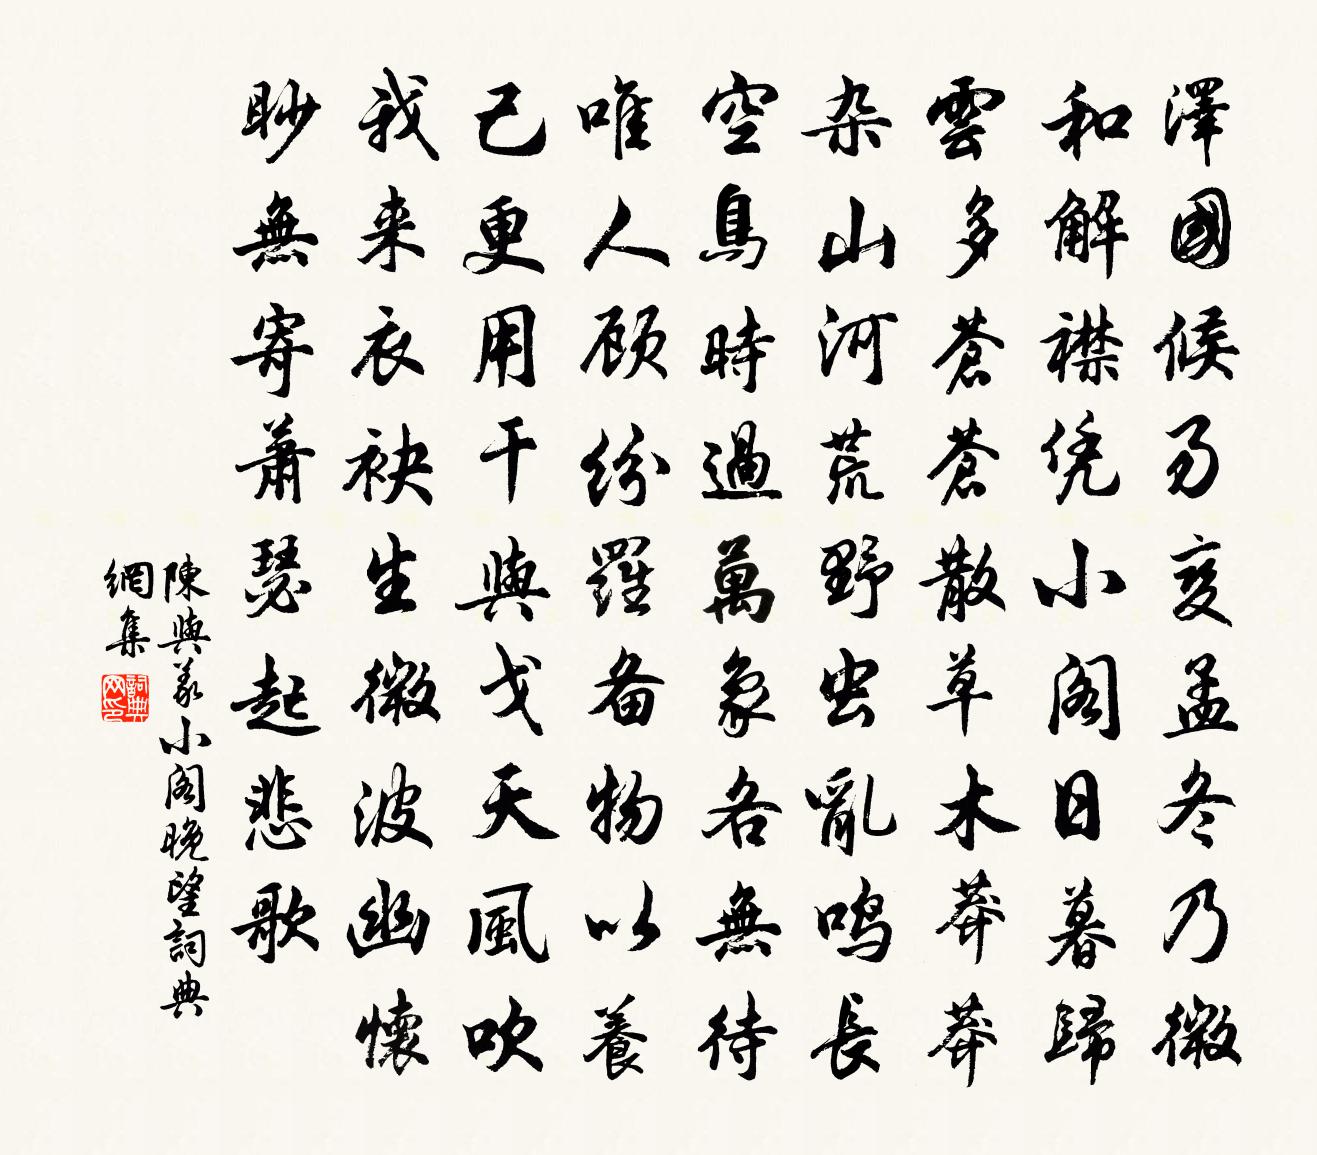 澤國候易变孟冬乃微
和解襟凭小阁日暮歸
雲多蒼蒼散草木莽莽
杂山河荒野虫亂鸣長
空鳥時過萬象各無待
唯人顾纷羅备物以養
己更用干與戈天風吹
我来衣袂生微波幽懷
眇無寄蕭瑟起悲歌
陳與義小阁晚望詞典
網集
詞典网印